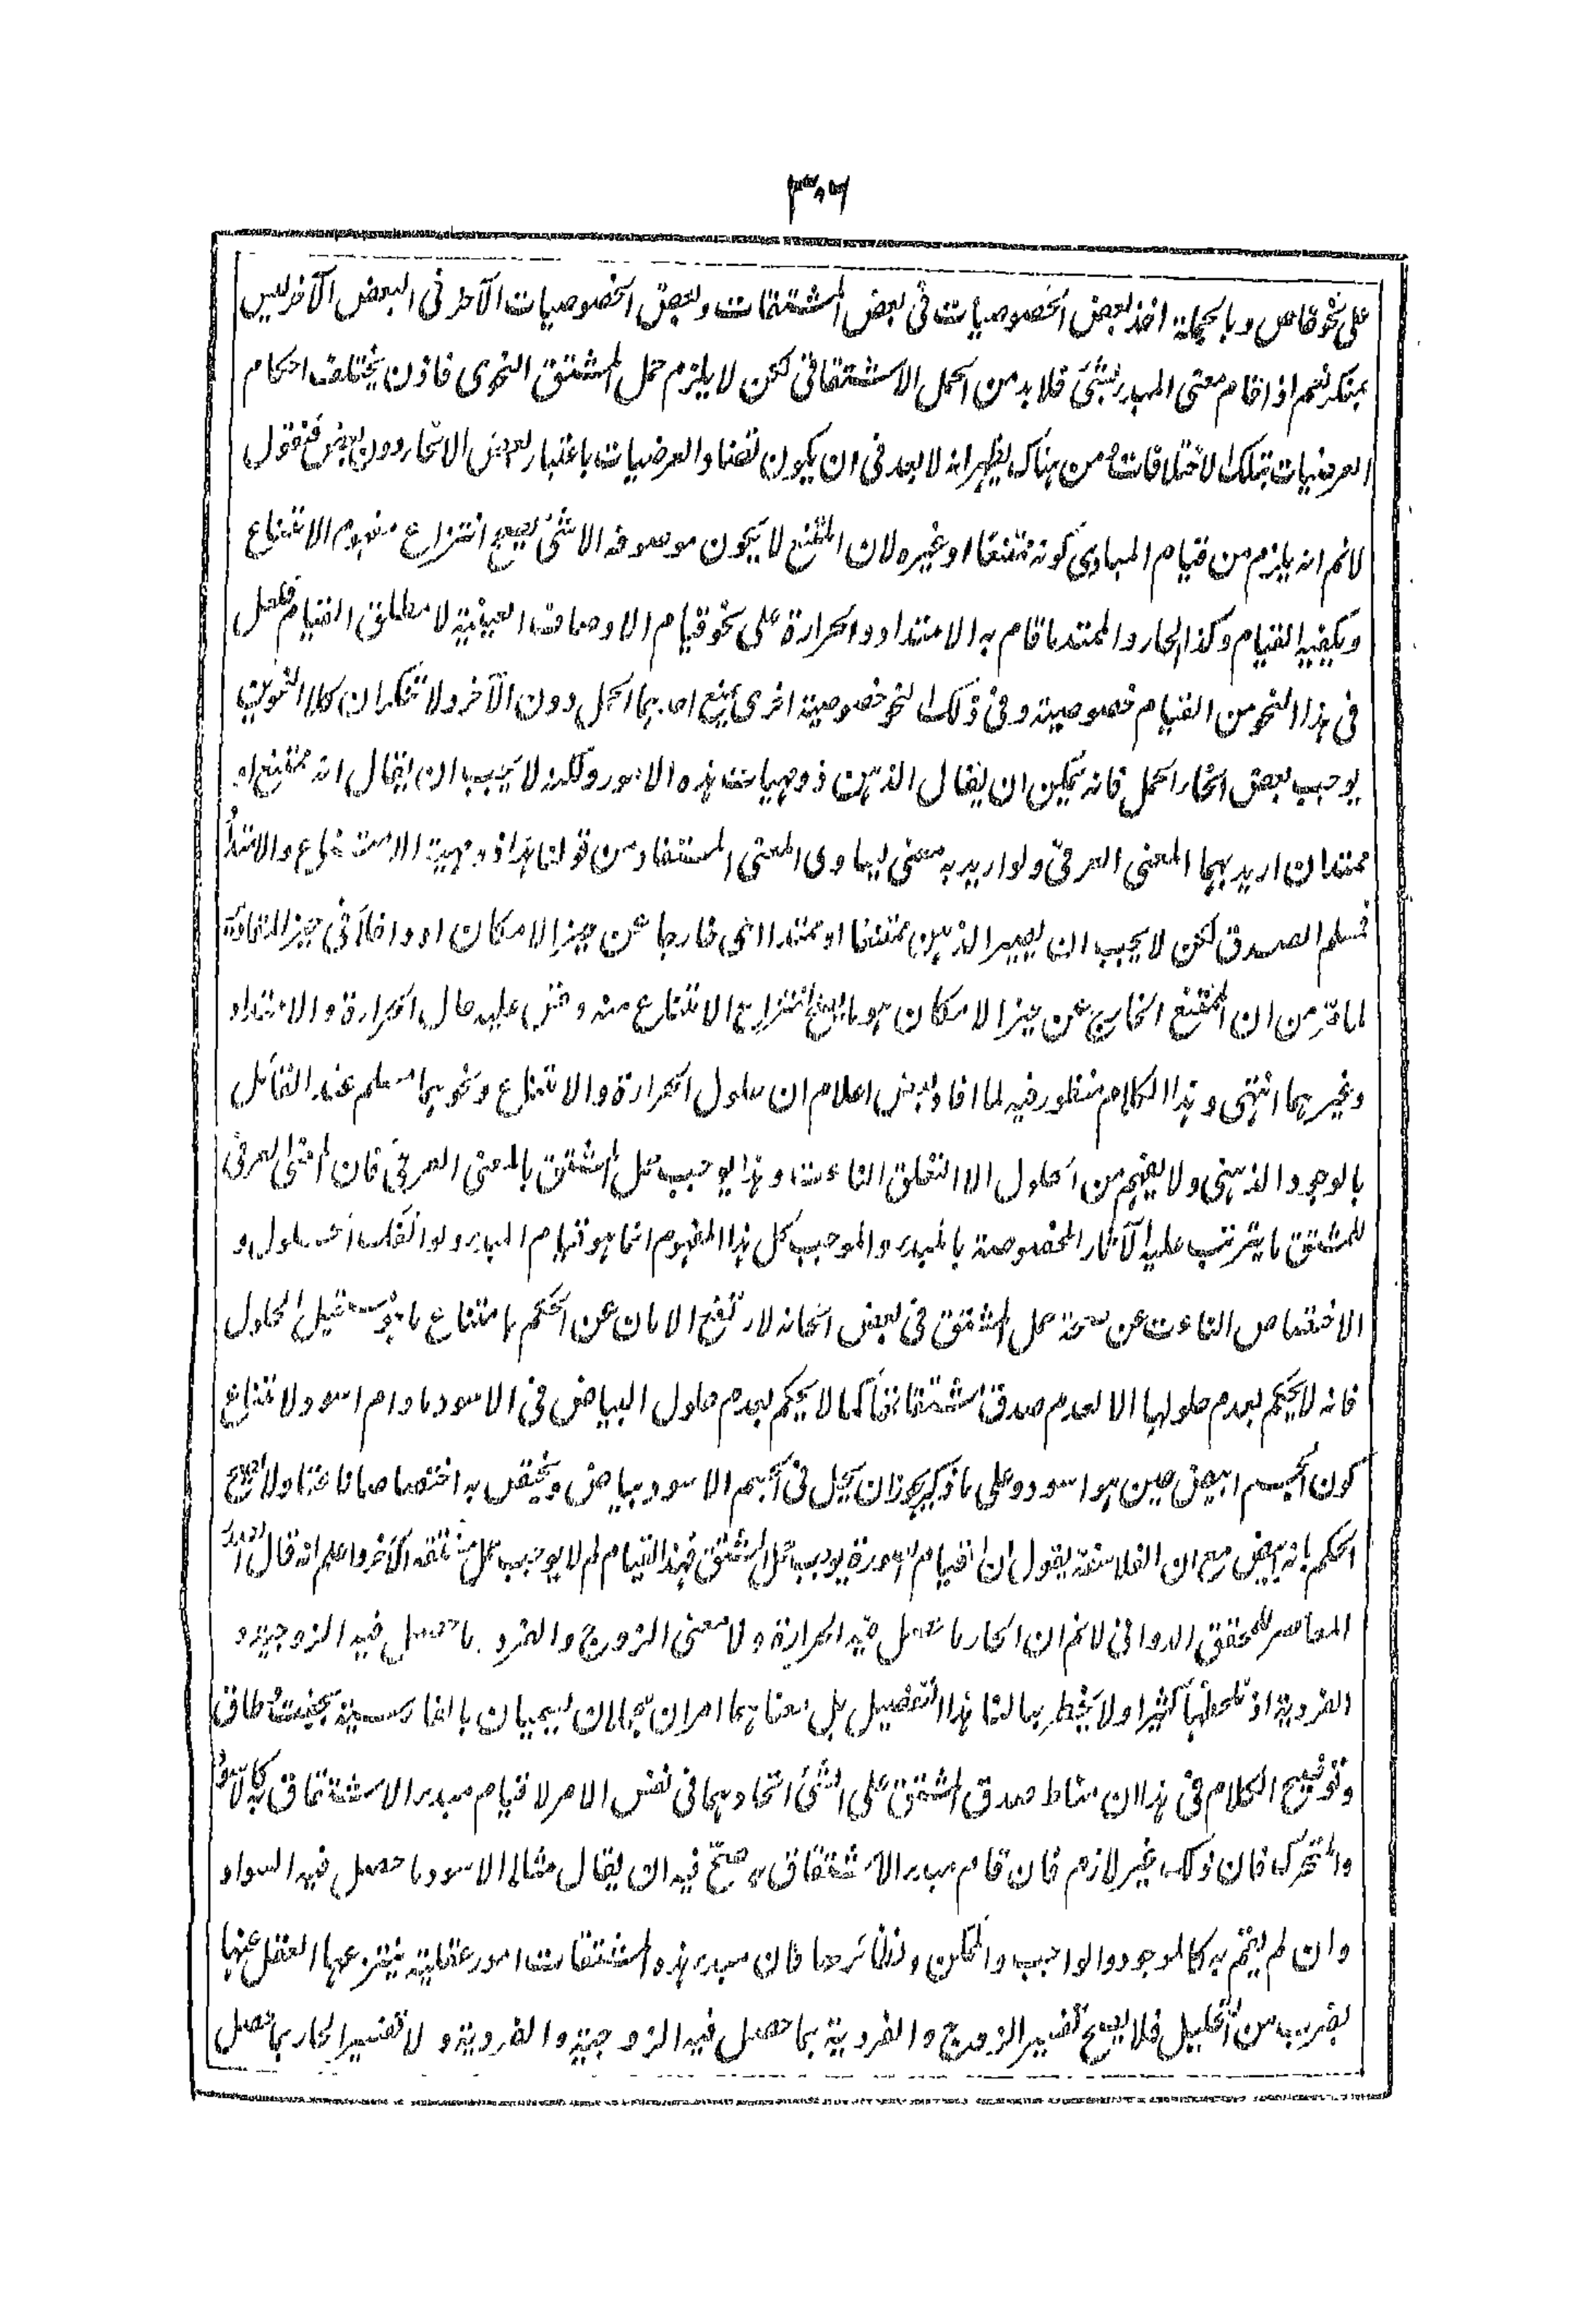 ٣٠٦
على نحو خاص وبالجملة اخذ بعض الخصوصيات في بعض المشتقات وبعض الخصوصيات الآخر في البعض الآخر ليس
بمنكر نعم اذا قام معنى المبدء بشئ فلابد من الحمل الاشتقاقي لكن لا يلزم حمل المشتق النحوى فاذن يختلف احكام
العرضيات بتلك الاختلافات ومن هناك يظهر انه لا بعد في ان يكون تضاد العرضيات باعتبار بعض الانحاء دون بعض فنقول
لانم انه يلزم من قيام المبادى كونه ممتنعا او غيره لان الممتنع لا يكون موصوفه الا شئ يصح انتزاع مفهوم الامتناع
ويكفيه القيام وكذا الحار والممتد ما قام به الامتداد والحرارة على نحو قيام الاوصاف العينية لا مطلق القيام فلعل
في هذا النحو من القيام خصوصية وفي ذلك النحو خصوصية اخرى يمنع احدهما الحمل دون الآخر ولا تنكر ان كلا النحوين
يوجب بعض انحاء الحمل فانه يمكن ان يقال الذهن ذو مهيات هذه الامور ولكنه لا يجب ان يقال انه ممتنع او
ممتد ان اريد بهما المعنى العرفي ولو اريد به معنى يساوى المعنى المستفاد من قولنا هذا ذو مهية الامتناع والامتداد
فمسلم الصدق لكن لا يجب ان يصير الذهن ممتنعا او ممتدا اى خارجا عن حيز الامكان او داخلا في حيز المتقادرة
لما مر من ان الممتنع الخارج عن حيز الامكان هو ما يصح انتزاع الامتناع منه وقس عليه حال الحرارة والامتداد
وغيرهما انتهى وهذا الكلام منظور فيه لما افاد بعض اعلام ان حلول الحرارة والامتناع ونحوهما مسلم عند القائل
بالوجود الذهني ولا يفهم من الحلول الا التعلق الناعت وهذا يوجب حمل المشتق بالمعنى العرفي فان المعنى العرفي
للمشتق ما يترتب عليه الآثار المخصوصة بالمبدء والموجب لحمل هذا المفهوم انما هو قيام المبدء ولو انفك الحلول و
الاختصاص الناعت عن صحة حمل المشتق في بعض انحائه لارتفع الامان عن الحكم بامتناع ما هو مستحيل الحلول
فانه لا يحكم بعدم حلولها الا لعدم صدق مشتقاتها كما لا يحكم بعدم حلول البياض في الاسود ما دام اسود لامتناع
كون الجسم ابيض حين هو اسود وعلى ما ذكر يجوز ان يحل في الجسم الاسود بياض ويختص به اختصاصا ناعتا ولا يصح
الحكم بانه ابيض مع ان الفلاسفة يقول ان قيام الصورة يوجب حمل المشتق فهذا القيام لم لا يوجب حمل مشتقه الآخر واعلم انه قال
المعاصر للمحقق الدواني لانم ان الحار ما حصل فيه الحرارة ولا معنى الزوج والفرد ما حصل فيه الزوجية و
الفردية اذ نلحظها كثيرا ولا يخطر ببالنا هذا التفصيل بل معناهما امران مجملان يسميان بالفارسية بجفت وطاق
وتوضيح الكلام في هذا ان مناط صدق المشتق على الشئ اتحادهما في نفس الامر لا قيام مبدء الاشتقاق به كالاسود
والمتحرك فان ذلك غير لازم فان قام مبدء الاشتقاق به صح فيه ان يقال مثالا الاسود ما حصل فيه السواد
وان لم يقم به كالموجود والواجب والممكن ونظائرها فان مبدء هذه المشتقات امور عقلية ينتزعها العقل عنها
بضرب من التحليل فلا يصح تفسير الزوج والفردية بما حصل فيه الزوجية والفردية و لا تفسير الحار بما حصل